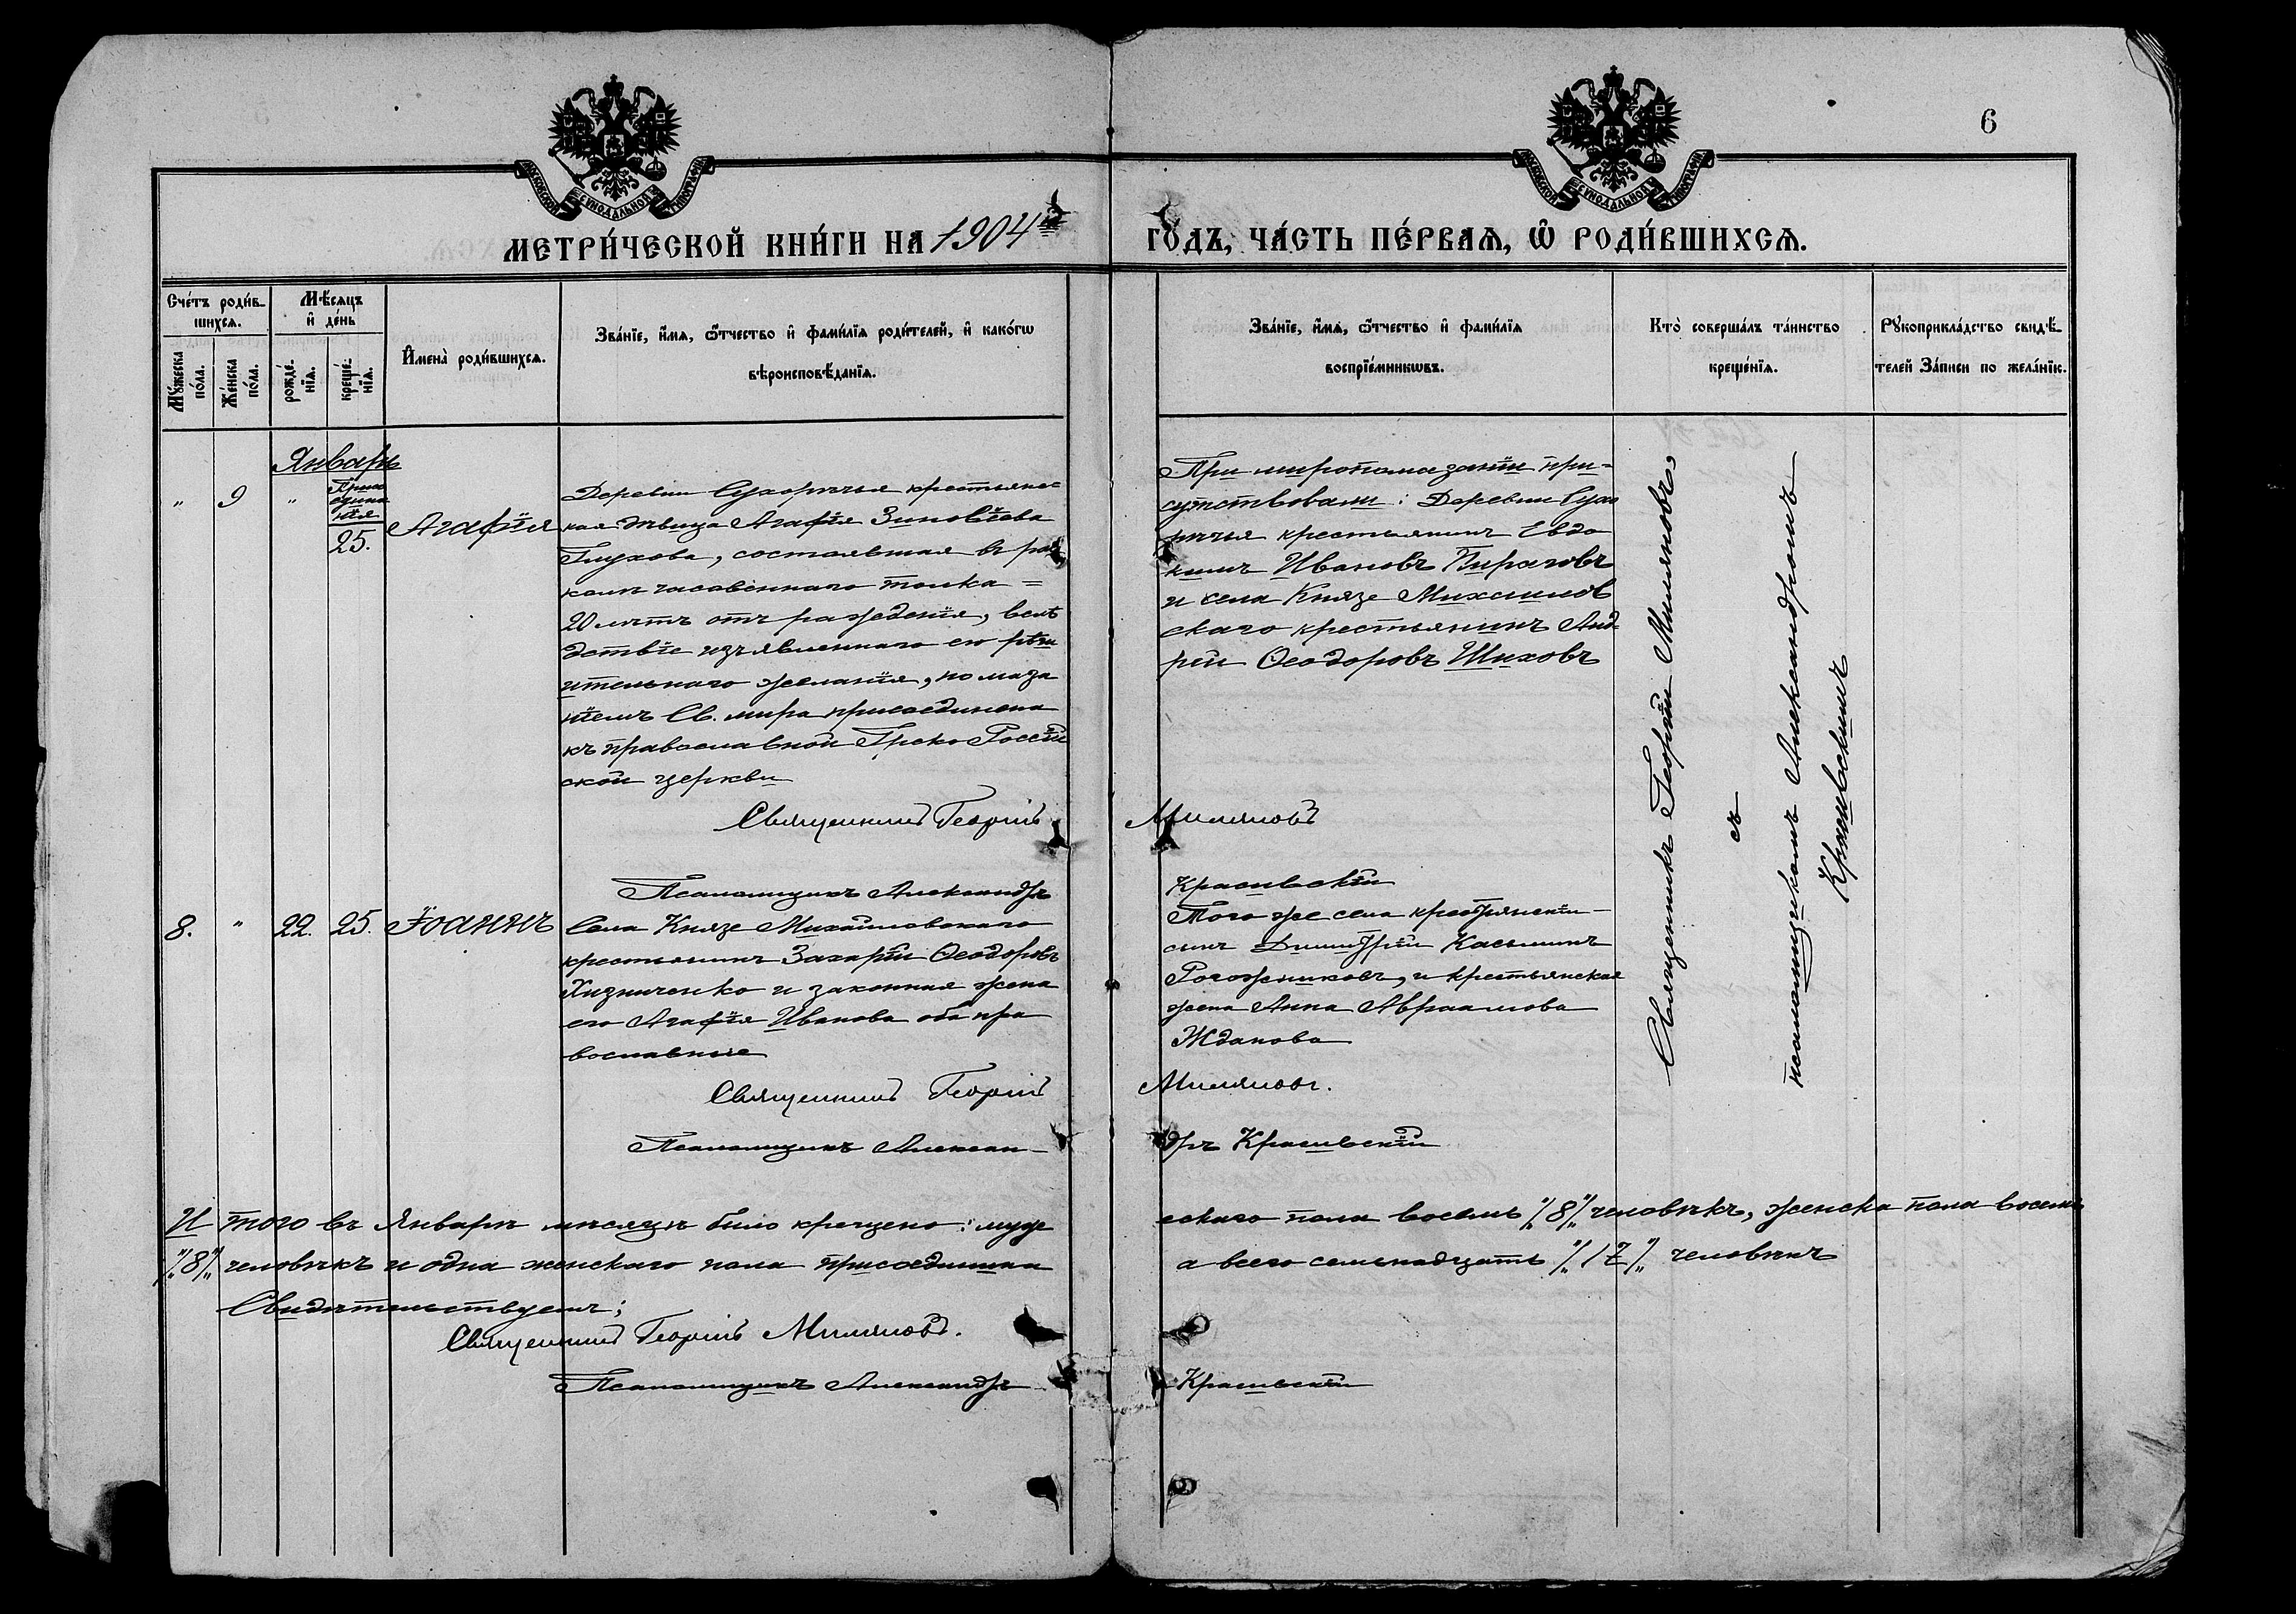 6
МОСКОВСКОЙ СѴНОДАЛЬНОЙ ТИПОГРАФІИ
МОСКОВСКОЙ СѴНОДАЛЬНОЙ ТИПОГРАФІИ
МЕТРИ́ЧЕСКОЙ КНИ́ГИ НА 1904й
ГО́ДЪ, ЧА́СТЬ ПЕ́РВАѦ, Ѡ҆ РОДИ́ВШИХСѦ.
Сче́тъ роди́в-
шихсѧ.
Мꙋ́жеска
по́ла.
Же́нска
по́ла.
Мѣ́сѧцъ
и҆ де́нь
рожде́-
нїѧ.
креще́-
нїѧ.
И҆мена̀ роди́вшихсѧ.
Зва́нїе, и҆́мѧ, ѻ҆́тчество и҆ фами́лїѧ роди́телей, и҆ како́гѡ
вѣроисповѣ́данїѧ.
Зва́нїе, и҆́мѧ, ѻ҆́тчество и҆ фами́лїѧ
воспрїе́мникѡвъ.
Кто̀ соверша́лъ та́инство
креще́нїѧ.
Рꙋкоприкла́дство свидѣ́-
телей За́писи по жела́нїю.
Январь
„ 9 „
Присо
едине
нія
25.
Агафія
Деревни Сухорѣчья крестьянс
кая дѣвица Агафія Зиновіева
Глухова, состоявшая въ рас
колѣ часовеннаго толка =
20 лѣтъ отъ рожденія, вслѣ
дствіе изъявленнаго ею рѣш
ительнаго желанія, помаза
ніемъ Св. мира присоединена
къ православной Греко Россій
ской церкви
Священникъ Георгій
Псаломщикъ Александръ
При миропомазаніи при-
сутствовали: Деревни Сухо
рѣчья крестьянинъ Евдо
кимъ Ивановъ Пираговъ
и села Князе Михайлов
скаго крестьянинъ Анд-
рей Ѳеодоровъ Шиховъ
Милмяновъ
Красивскій
Священникъ Георгій
съ
псаломщикомъ Александромъ
8. „ 22. 25. Іоаннъ
Села Князе Михайловскаго
крестьянинъ Захарій Ѳеодоровъ
Хизниченко и законная жена
его Агафія Иванова оба пра
вославные
Священникъ Георгій
Псаломщикъ Алексан-
Того же села крестьянскій
сынъ Димитрій Касьминъ
Рогожниковъ, и крестьянская
жена Анна Авраамова
Жданова
дръ Красивскій
И того въ Январѣ мѣсяцѣ было крещено: муже
скаго пола восемь /8/ человѣкъ, женска пола восемь
/8/ человѣкъ и одна женскаго пола присоединена
а всего семьнадцать /17/ человѣкъ
Свидѣтельствуемъ;
Священникъ Георгій
Псаломщикъ Александръ
Красивскій